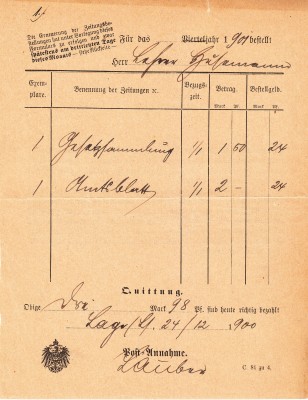 Die Erneuerung der Zeitungsbe-
stellungen hat unter Vorlegung dieses
Formulars zu erfolgen und zwar
spätestens am drittletzten Tage
dieses Monats
Für das Vierteljahr 1901 bestellt
Herr Lehrer Husemann
Exem-
plare. Benennung der Zeitungen ꝛc. Bezugs-
zeit. Betrag. Bestellgeld.
Mark Pf. Mark Pf.
1 Gesetzsammlung 1/1 1 60 24
1 Amtsblatt 1/1 2 – 24
Quittung.
Obige Drei Mark 98 Pf. sind heute richtig bezahlt
Lage/L. 24/12 1900
Post-Annahme.
C. 81 zu 4.